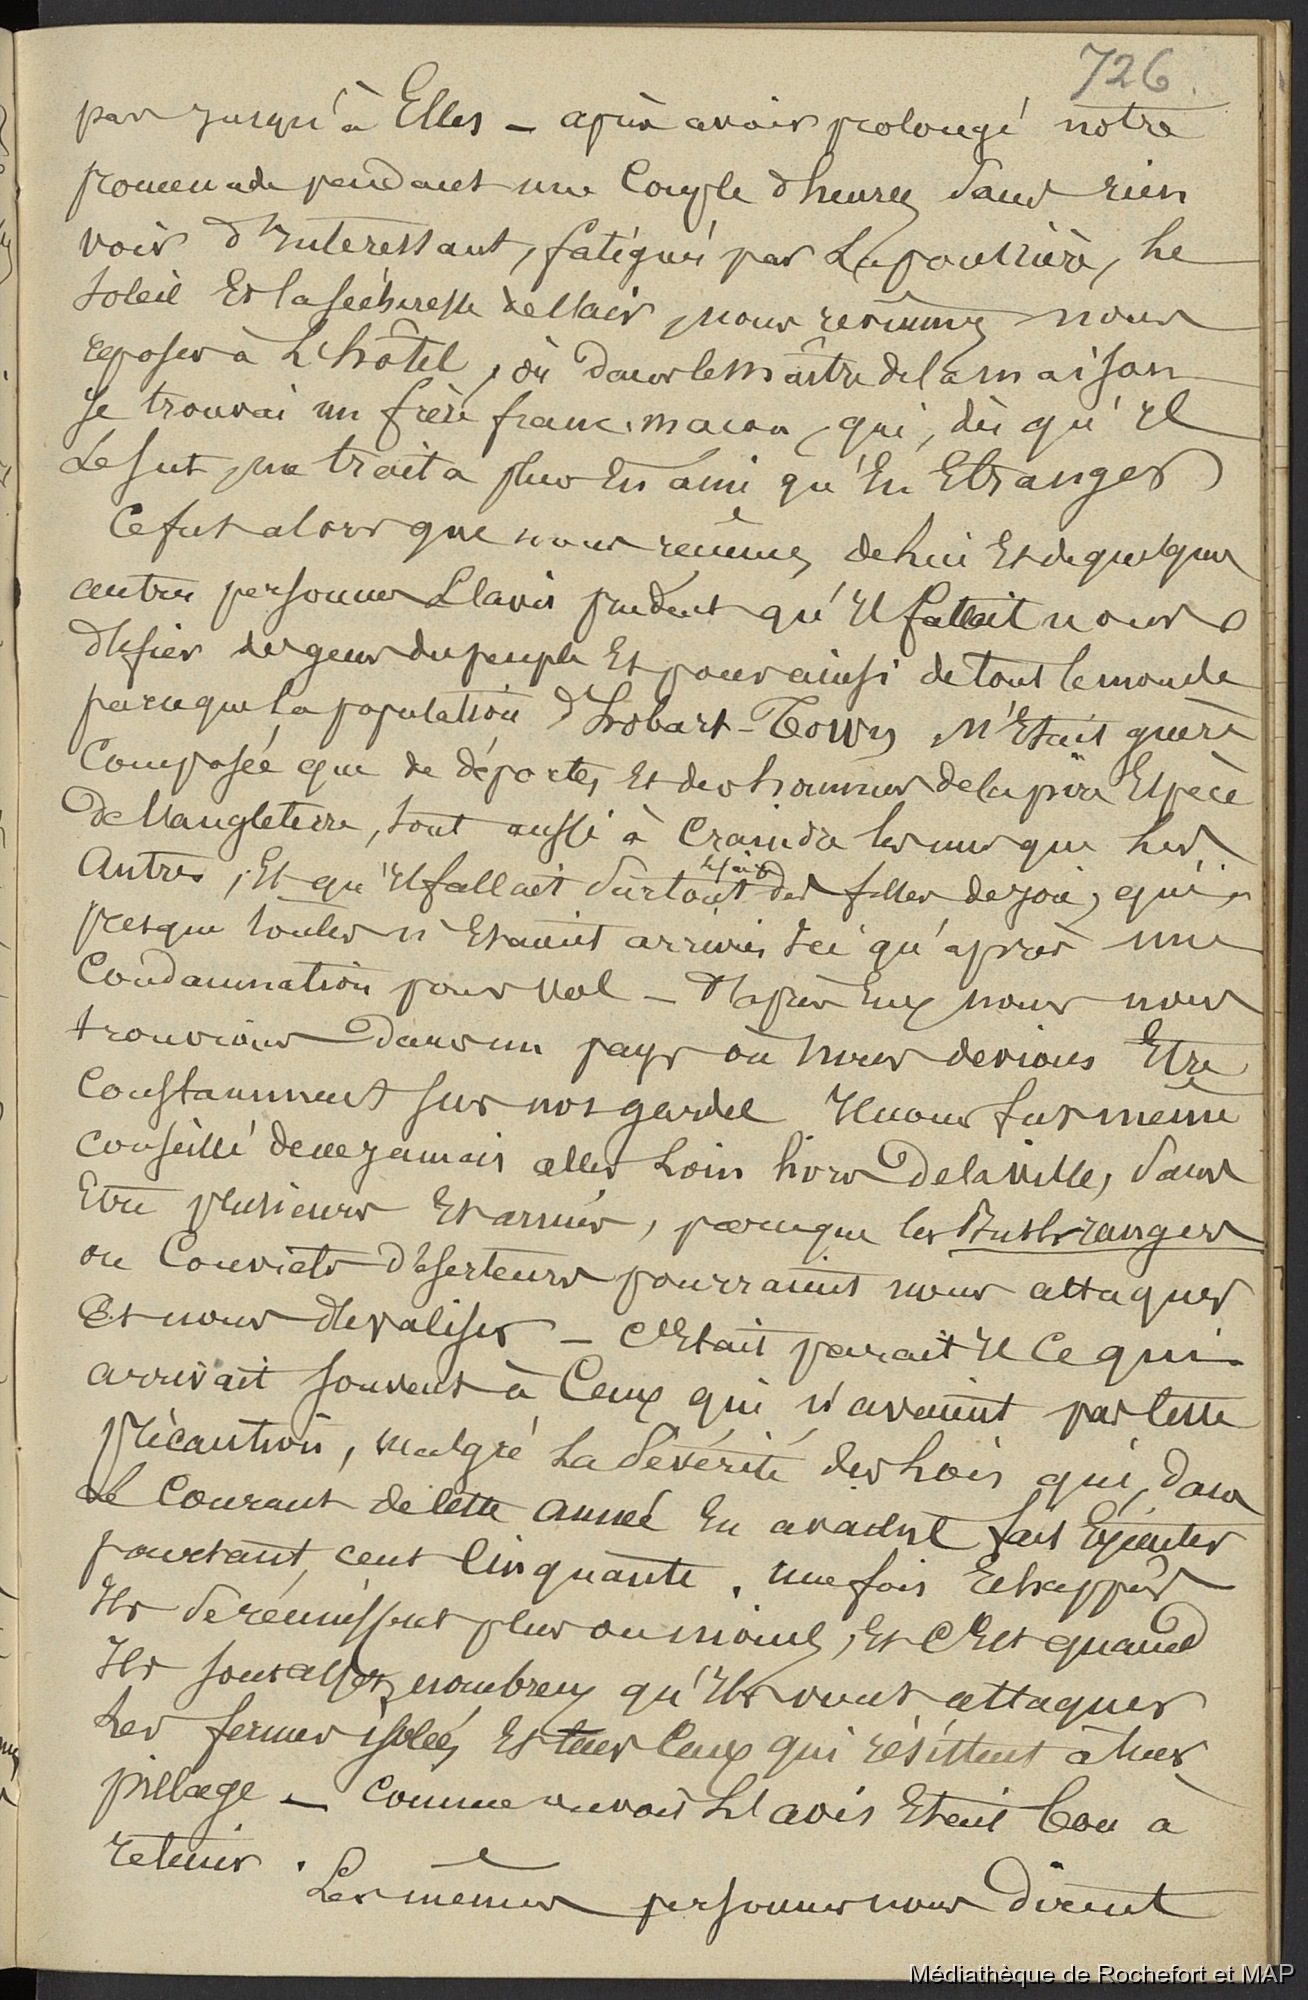 726.
pas jusqu'à Elles – après avoir prolongé notre
promenade pendant une Couple d'heures Sans rien
voir d'Interessant, fatigués par La poussière, Le
Soleil Et la sécheresse de l'air, nous revinmes nous
reposer à L'hôtel, où dans le maître de la maison
Je trouvai un frère franc-maçon, qui, dès qu'Il
Le Sut, me traita plus En ami qu'En Etranger
Ce fut alors que nous reçumes de Lui Et de quelques
autres personnes L'avis prudent qu'Il fallait nous
défier des gens du peuple Et pour ainsi de tout le monde
parceque La population d'Hobart-Town, N'Etait guère
Composée que de déportés Et des hommes de la pire Espèce
De l'angleterre, tout aussi à Craindre les uns que Les
Autres, Et qu'Il fallait Surtout des filles de joie, qui,
presque toutes n'Etaient arrivées Ici qu'après une
Condamnation pour Vol – D'après Eux nous nous
trouvions Dans un pays où Nous devions Etre
Constamment sur nos gardes Il nous fut même
Conseillé de ne jamais aller Loin hors De la Ville, Sans
Etre plusieurs Et armés, parceque les Bushrangers
ou Convicts Déserteurs pourraient nous attaquer
Et nous dévaliser – C'Etait parait Il Ce qui
arrivait souvent à Ceux qui n'avaient pas Cette
Précaution, malgré La Sévérité des Lois qui, dans
Le Courant de Cette année En avaient fait Exécuter
pourtant, cent Cinquante. Une fois Echappés
Ils Se réunissent plus ou moins, Et C'Est quand
Ils sont assez nombreux qu'Ils vont attaquer
Les fermes isolées Et tuer Ceux qui résistent à Leur
pillage – Comme on voit L'avis Etait Bon à
retenir.
Les mêmes personnes nous dirent
Médiathèque de Rochefort et MAP